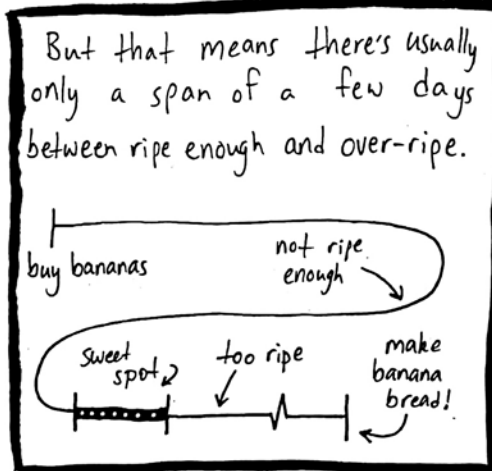 But that means there's usually
only a span of a few days
between ripe enough and over-ripe.
buy bananas
not ripe
enough
sweet
spot
too ripe
make
banana
bread!